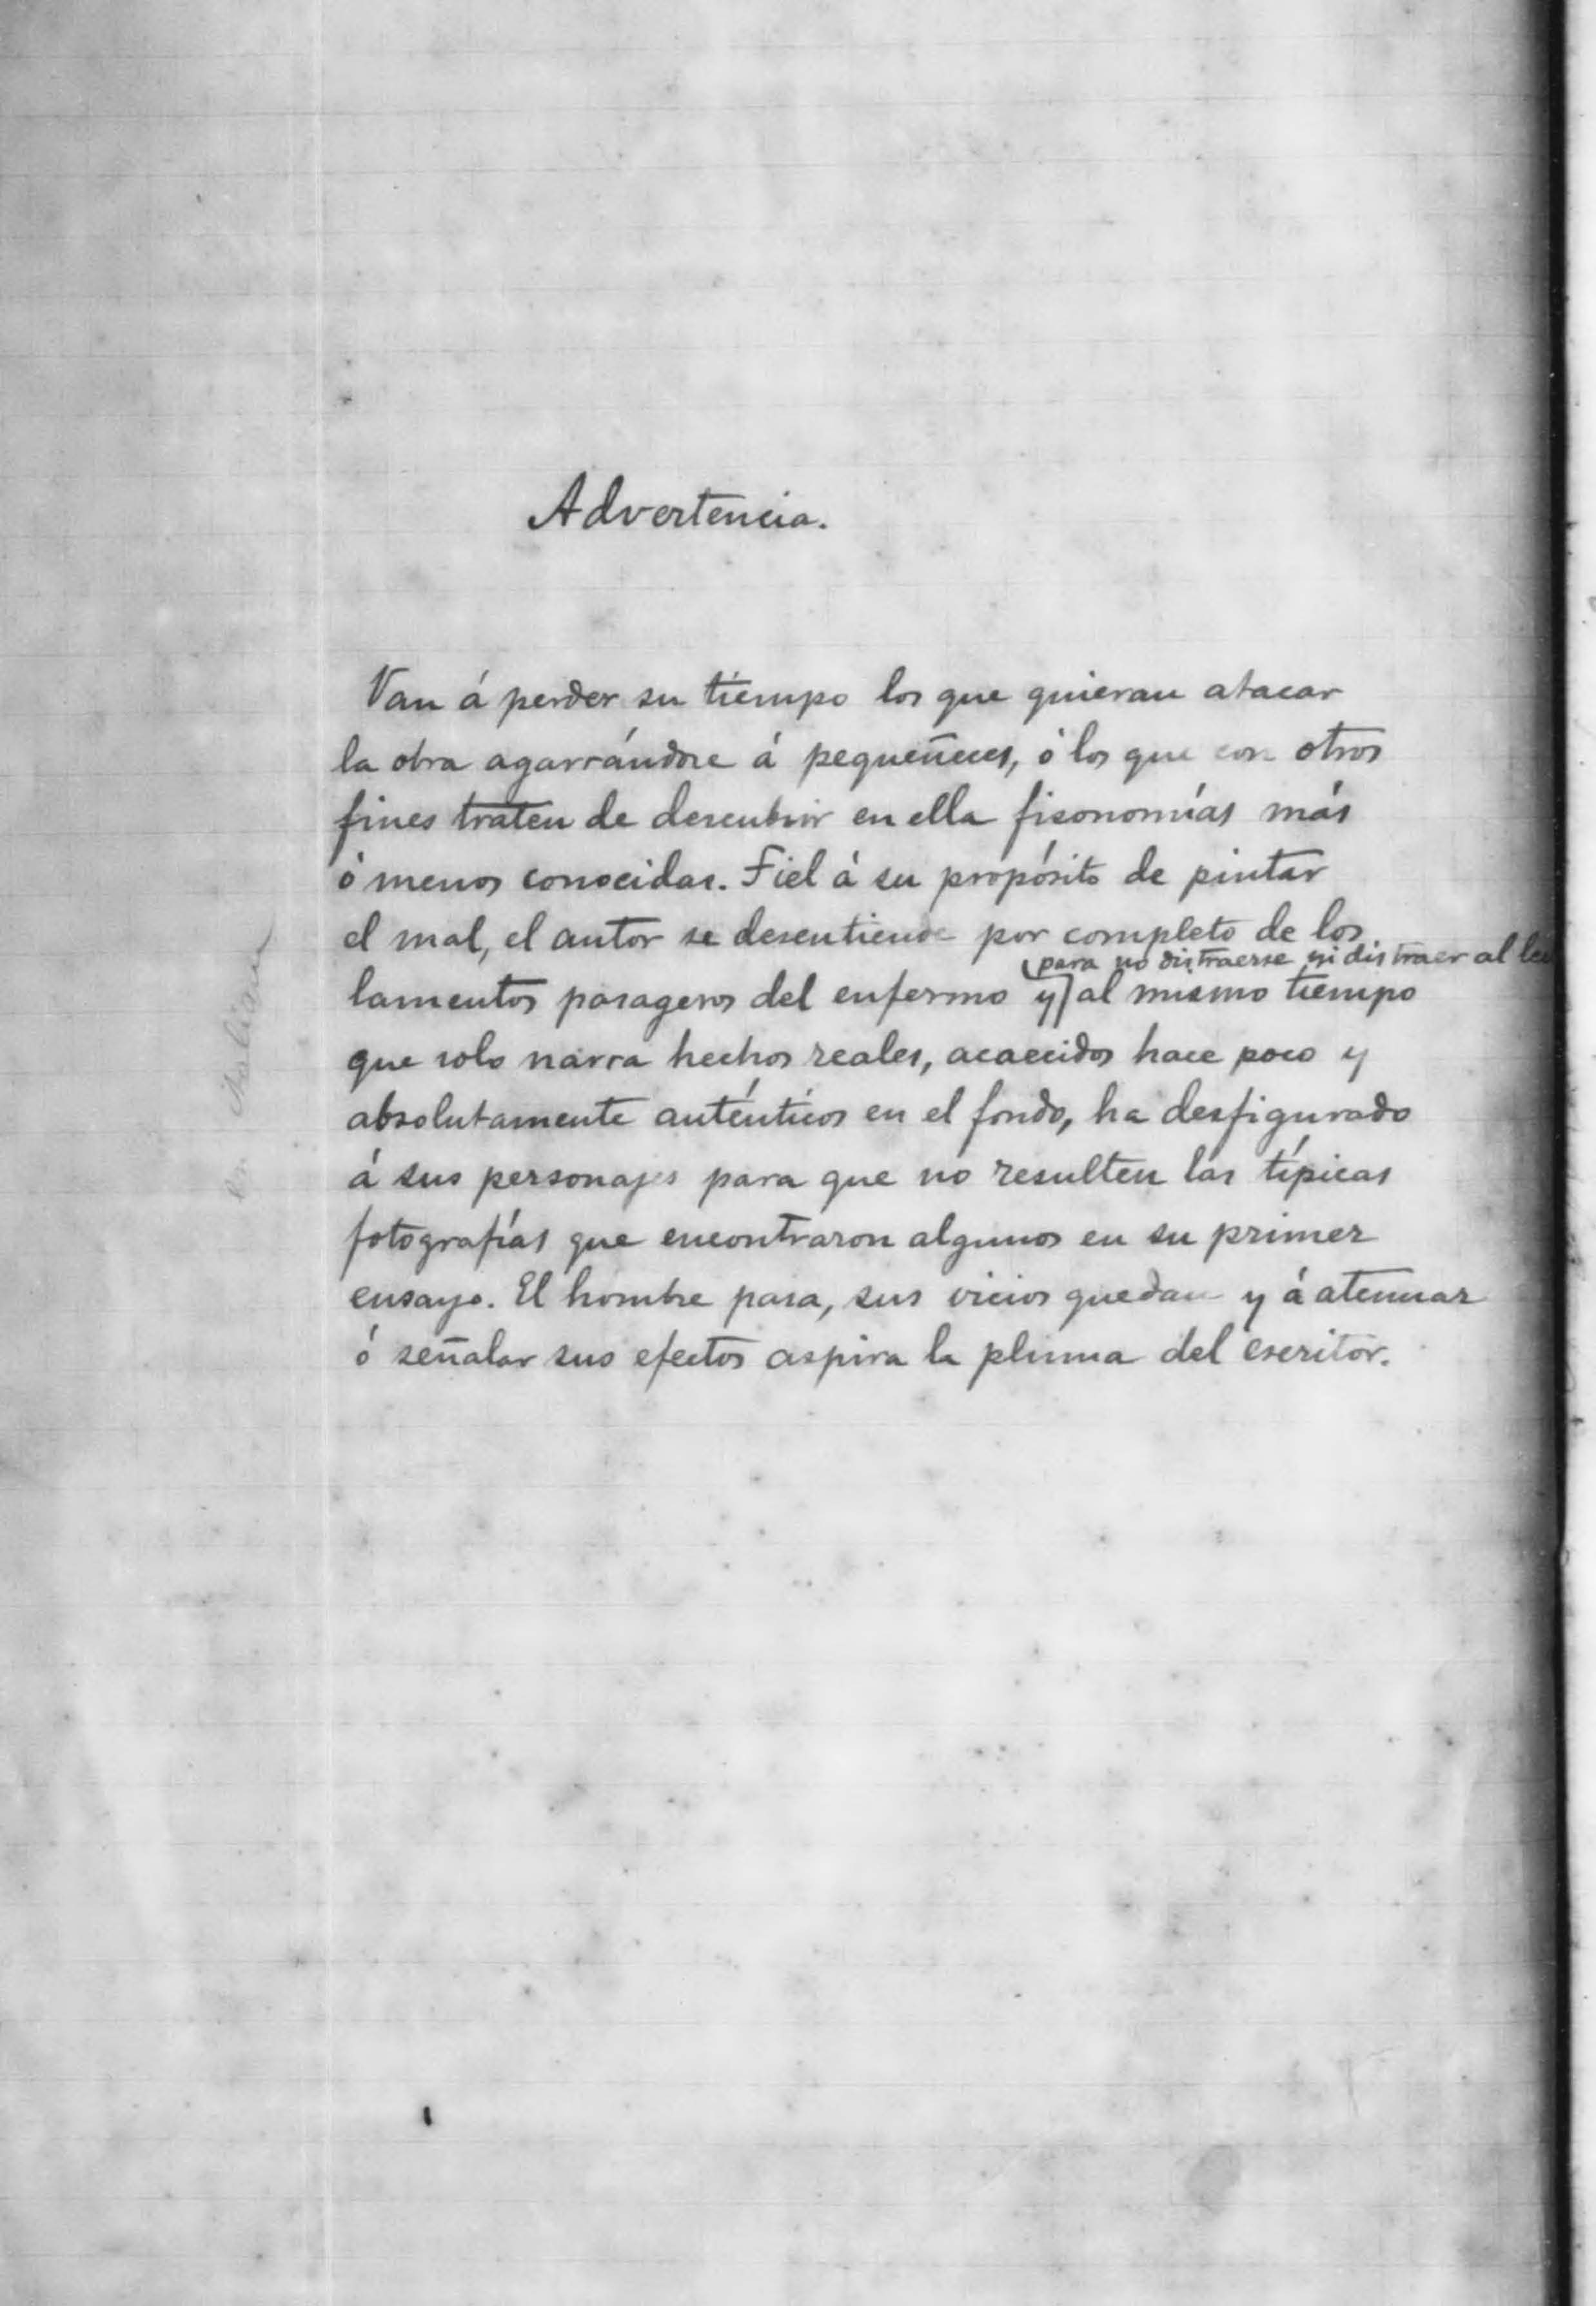 Advertencia.
Van á perder su tiempo los que quieran atacar
la obra agarrándose á pequeñeces, ó los que con otros
fines traten de descubrir en ella fisonomías más
ó menos conocidas. Fiel á su propósito de pintar
el mal, el autor se desentiende por completo de los
para no distraerse ni distraer al
lamentos pasageros del enfermo y al mismo tiempo
que solo narra hechos reales, acaecidos hace poco y
absolutamente auténticos en el fondo, ha desfigurado
á sus personajes para que no resulten las típicas
fotografías que encontraron algunos en su primer
ensayo. El hombre pasa, sus vicios quedan y á atenuar
ó señalar sus efectos aspira la pluma del escritor.